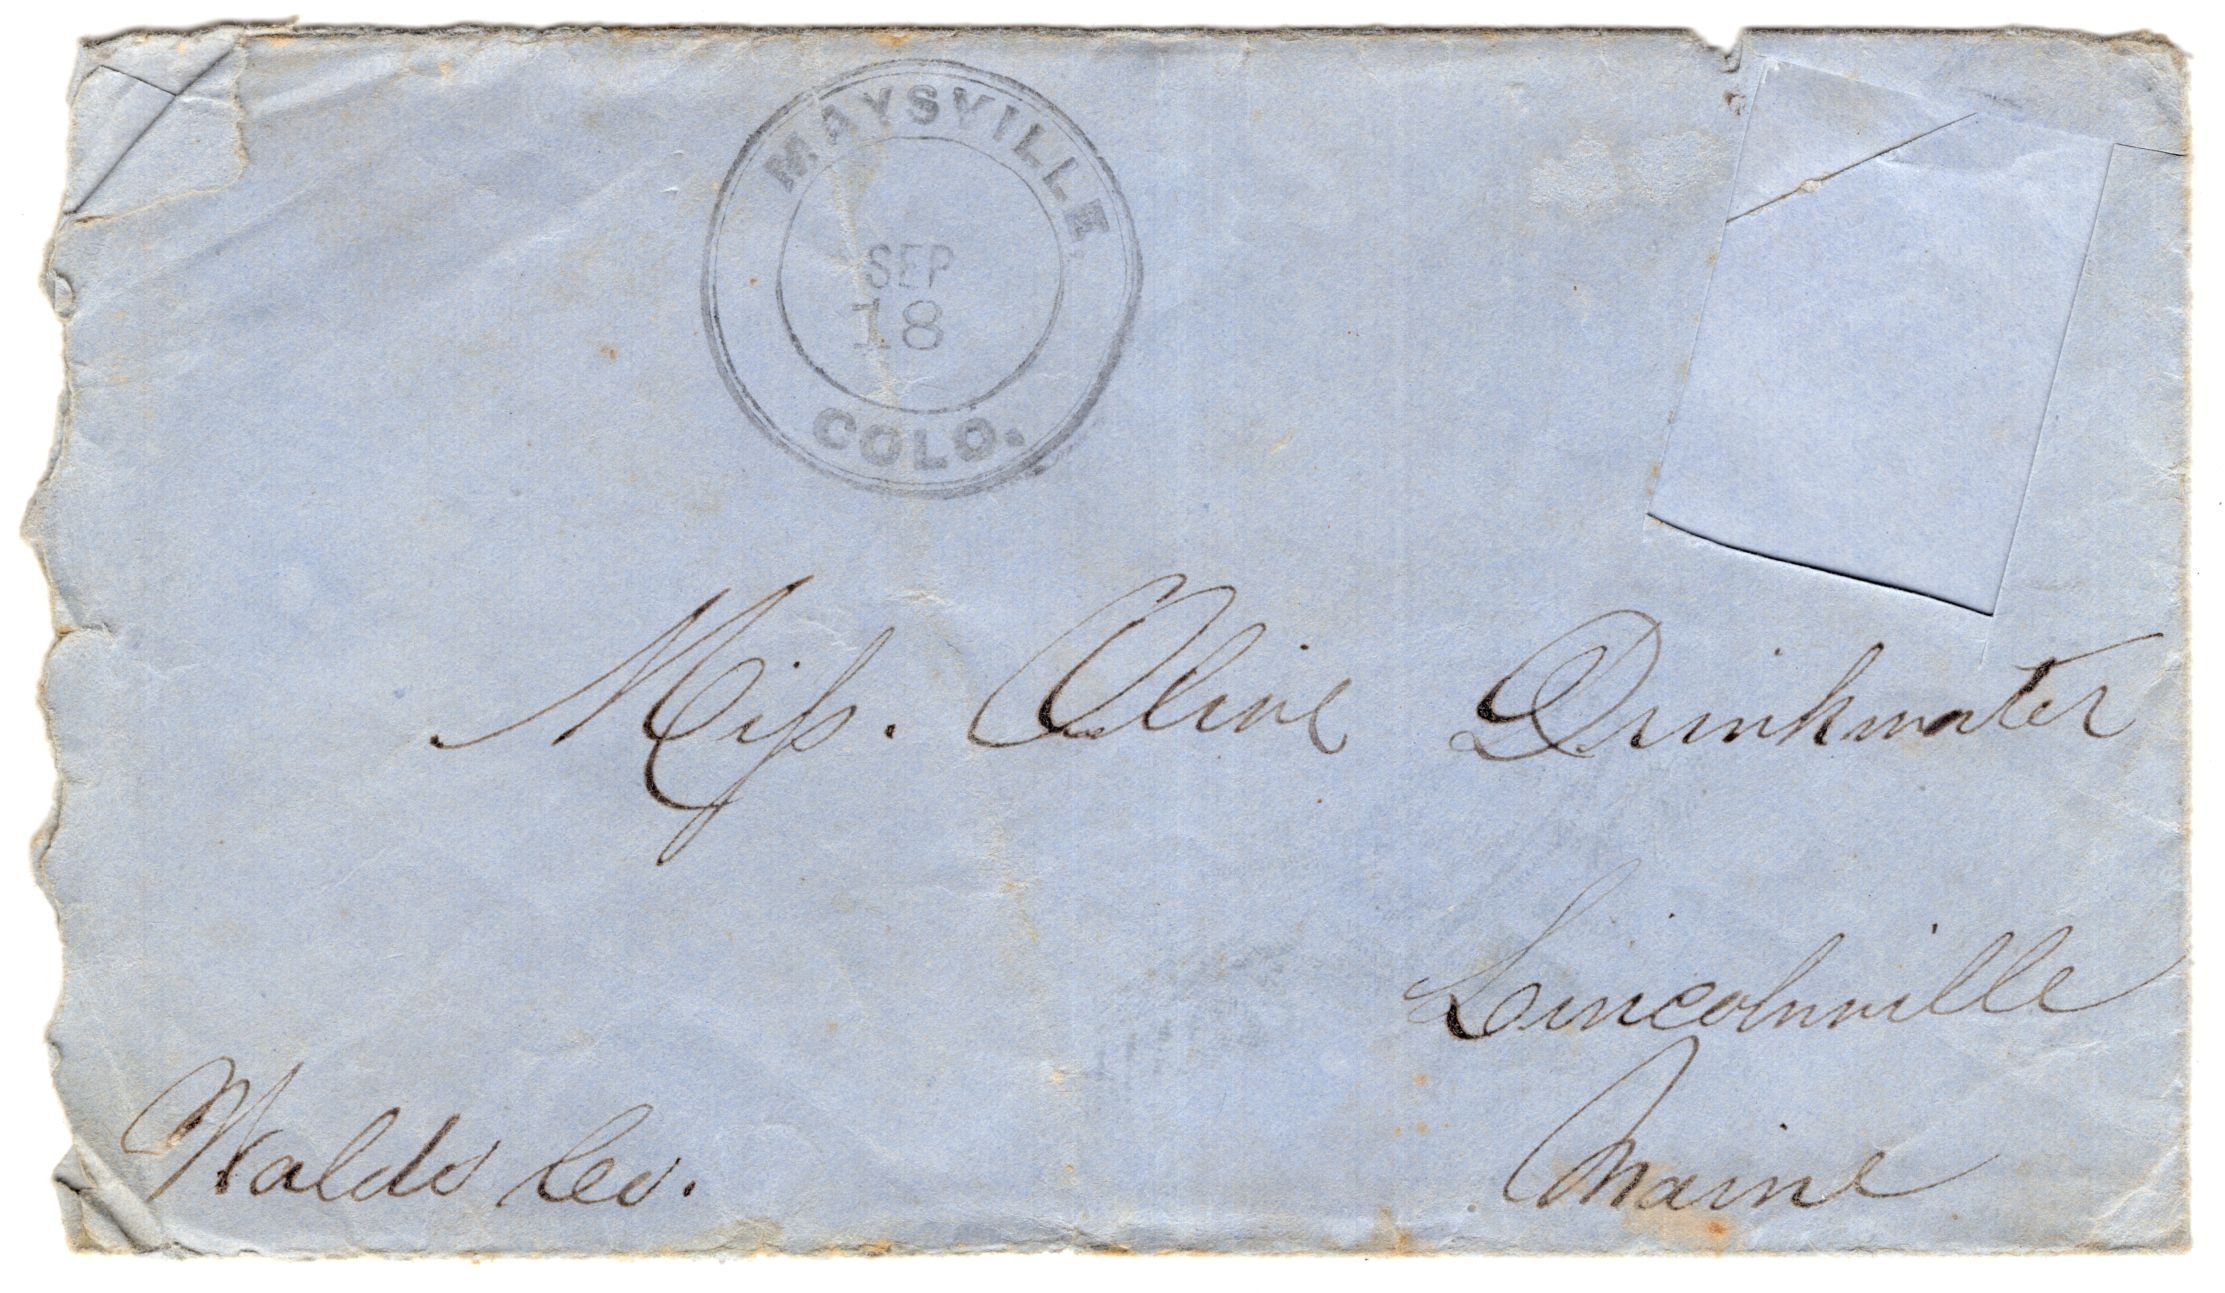 MAYSVILLE
SEP
18
COLO.
Miss. Olive Drinkwater
Lincolnville
Maine
Waldo Co.